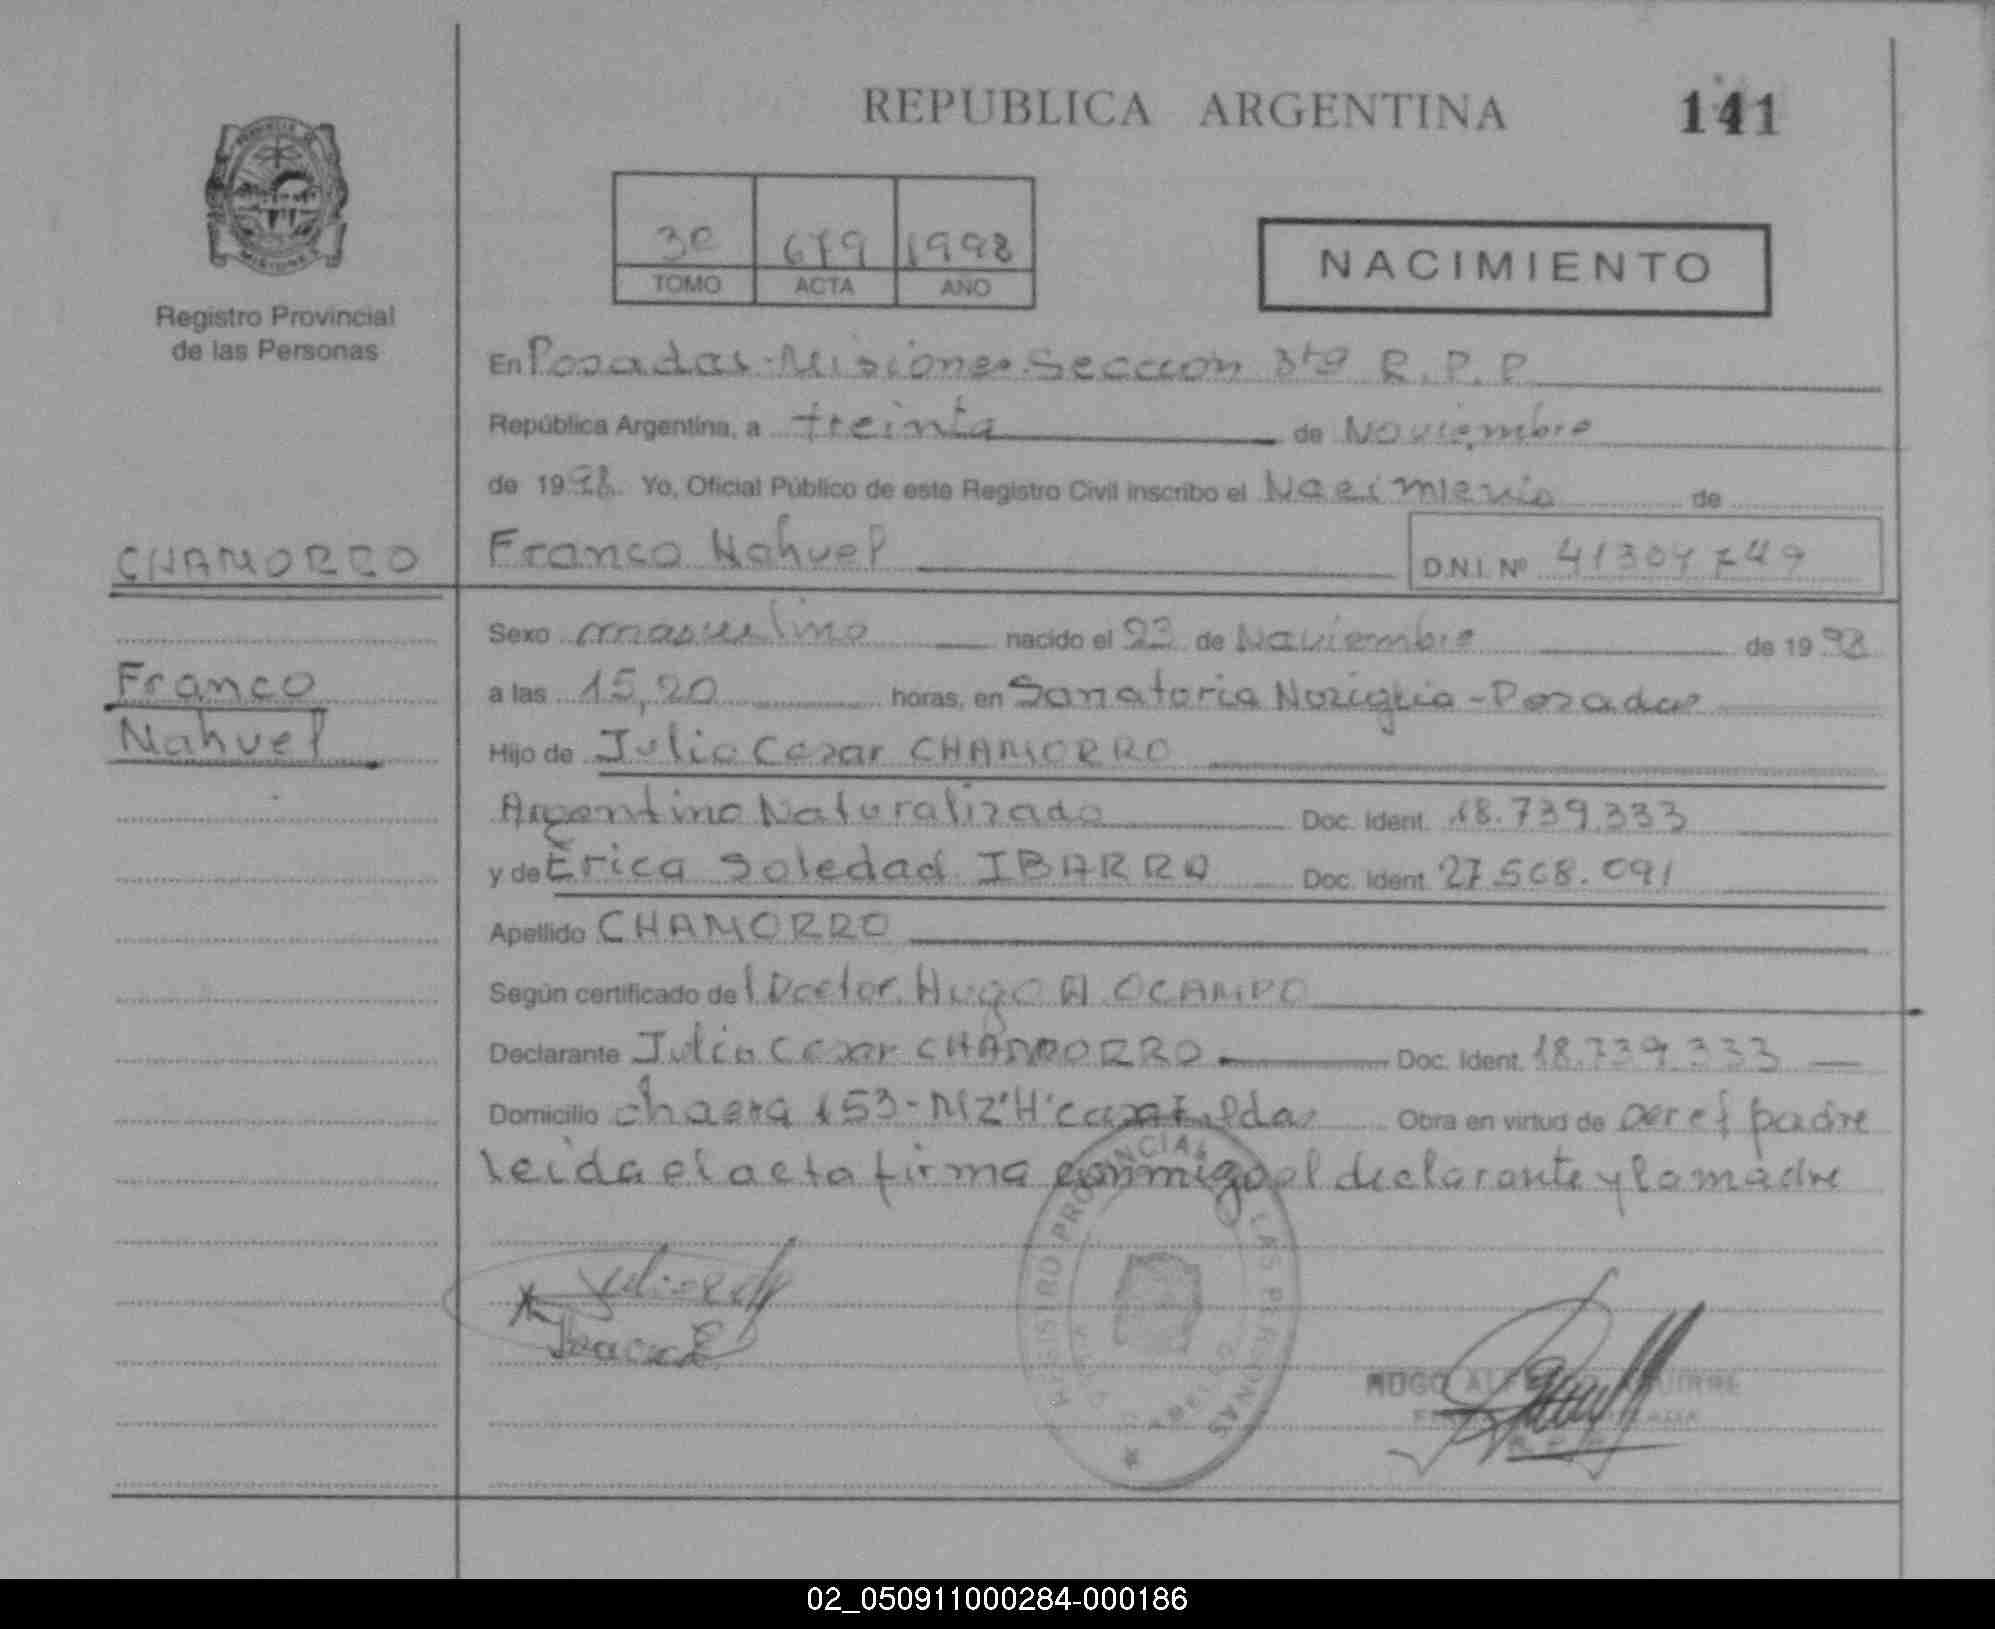 REPUBLICA ARGENTINA
141
3º 679 1998
TOMO ACTA AÑO
NACIMIENTO
MISIONES
Registro Provincial
de las Personas
En Posadas-Misiones. Sección 3ra R.P.P
República Argentina, a treinta de Noviembre
de 1998. Yo, Oficial Público de este Registro Civil inscribo el Nacimiento de
CHAMORRO
Franco Nahuel
D.N.I. Nº 41304749
Franco
Nahuel
Sexo masculino nacido el 23 de Noviembre de 1998
a las 15,20 horas, en Sanatorio Noziglia-Posadas
Hijo de Julio Cesar CHAMORRO
Argentino Naturalizado Doc. Ident. 18.739.333
y de Erica Soledad IBARRA Doc. Ident. 27.568.091
Apellido CHAMORRO
Según certificado del Doctor Hugo A. OCAMPO
Declarante Julio Cesar CHAMORRO Doc. Ident. 18.739.333
Domicilio chacra 153-MZ'H'casa Obra en virtud de ser el padre
leida el acta firma conmigo el declarante y la madre
REGISTRO PROVINCIAL LAS PERSONAS
HUGO AGUIRRE
02_050911000284-000186